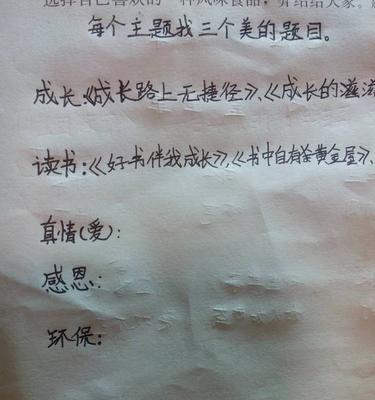 选择自己喜欢的一种风味食品，介绍给大家。
每个主题找三个美的题目。
成长：《成长路上无捷径》、《成长的滋滋
读书：《好书伴我成长》，《书中自有黄金屋》、
真情(爱)：
感恩：
环保：